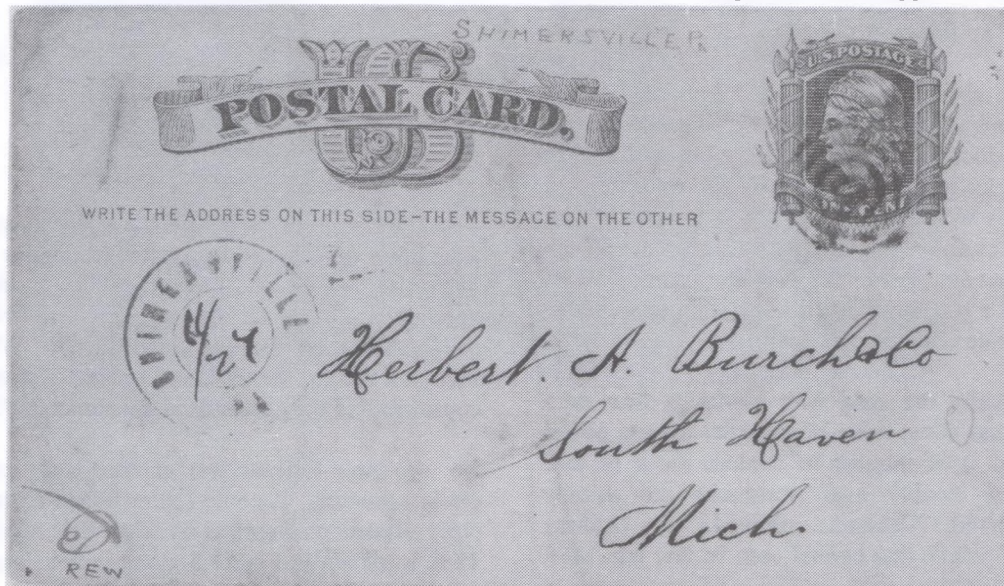 SHIMERSVILLE Pa
US
POSTAL CARD.
U.S. POSTAGE
WRITE THE ADDRESS ON THIS SIDE-THE MESSAGE ON THE OTHER
SHIMERSVILLE
Herbert. A. Burch & Co
South Haven
Mich.
REW